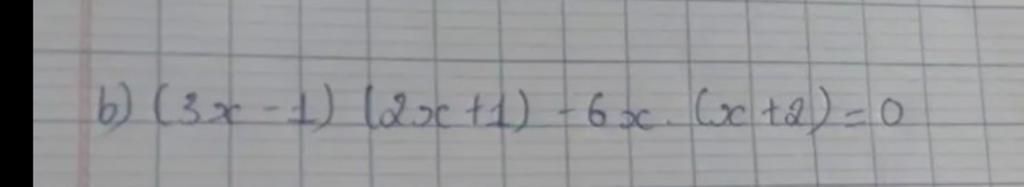 b) (3x - 1) (2x + 1) - 6x. (x + 2) = 0